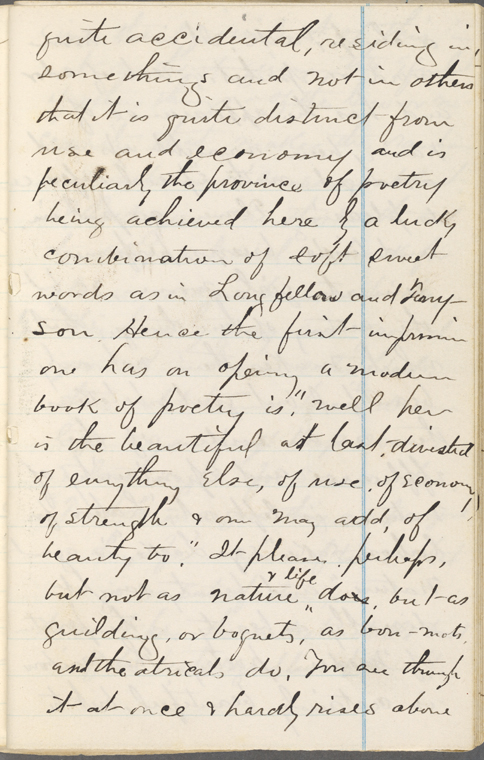 quite accidental, residing in,
some things and not in others
that it is quite distinct from
use and economy and is
peculiarly the province of poetry
being achieved here by a lucky
combination of soft sweet
words as in Longfellow and Tenny-
son. Hence the first impression
one has on opening a modern
book of poetry is, "well here
is the beautiful at last, divested
of everything else, of use, of economy,
of strength & one may add, of
beauty too." It pleases perhaps,
but not as nature & life does, but as
guilding, or boquets, as bon-mots,
and theatricals do. You are through
it at once & hardly rises above